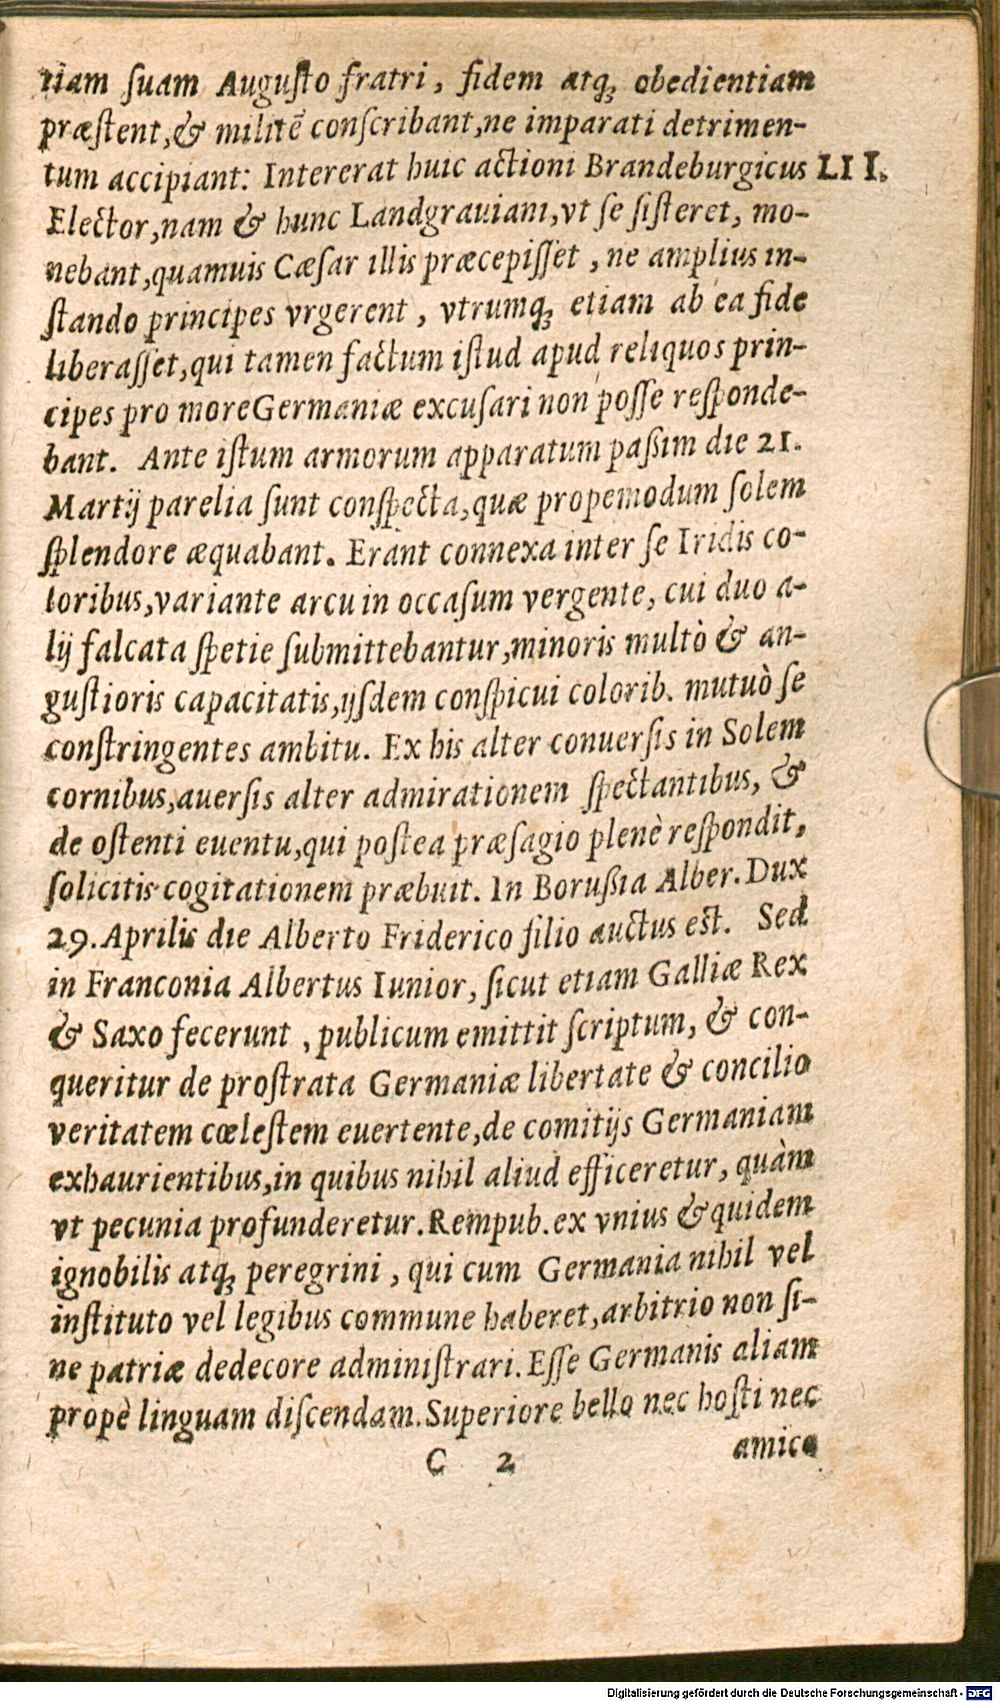 tiam ſuam Auguſto fratri, fidem atq; obedientiam
præſtent,& militē conſcribant,ne imparati detrimen-
tum accipiant: Intererat huic actioni Brandeburgicus LII.
Elector,nam & hunc Landgrauiani,vt ſe ſiſteret, mo-
nebant,quamuis Cæſar illis præcepiſſet, ne amplius in-
ſtando principes vrgerent, vtrumq; etiam ab ea fide
liberaſſet,qui tamen factum iſtud apud reliquos prin-
cipes pro more Germaniæ excuſari non poſſe reſponde-
bant. Ante iſtum armorum apparatum paßim die 21.
Martij parelia ſunt conſpecta,quæ propemodum ſolem
ſplendore æquabant. Erant connexa inter ſe Iridis co-
loribus,variante arcu in occaſum vergente, cui duo a-
lij falcata ſpetie ſubmittebantur,minoris multò & an-
guſtioris capacitatis,ijſdem conſpicui colorib. mutuò ſe
conſtringentes ambitu. Ex his alter conuerſis in Solem
cornibus,auerſis alter admirationem ſpectantibus, &
de oſtenti euentu,qui poſtea præſagio plenè reſpondit,
ſolicitis cogitationem præbuit. In Borußia Alber. Dux
29. Aprilis die Alberto Friderico filio auctus eſt. Sed
in Franconia Albertus Iunior, ſicut etiam Galliæ Rex
& Saxo fecerunt, publicum emittit ſcriptum, & con-
queritur de proſtrata Germaniæ libertate & concilio
veritatem cœleſtem euertente,de comitijs Germaniam
exhaurientibus,in quibus nihil aliud efficeretur, quàm
vt pecunia profunderetur. Rempub. ex vnius & quidem
ignobilis atq; peregrini, qui cum Germania nihil vel
inſtituto vel legibus commune haberet,arbitrio non ſi-
ne patriæ dedecore adminiſtrari. Eſſe Germanis aliam
propè linguam diſcendam. Superiore bello nec hoſti nec
C 2 amico
Digitalisierung gefördert durch die Deutsche Forschungsgemeinschaft - DFG